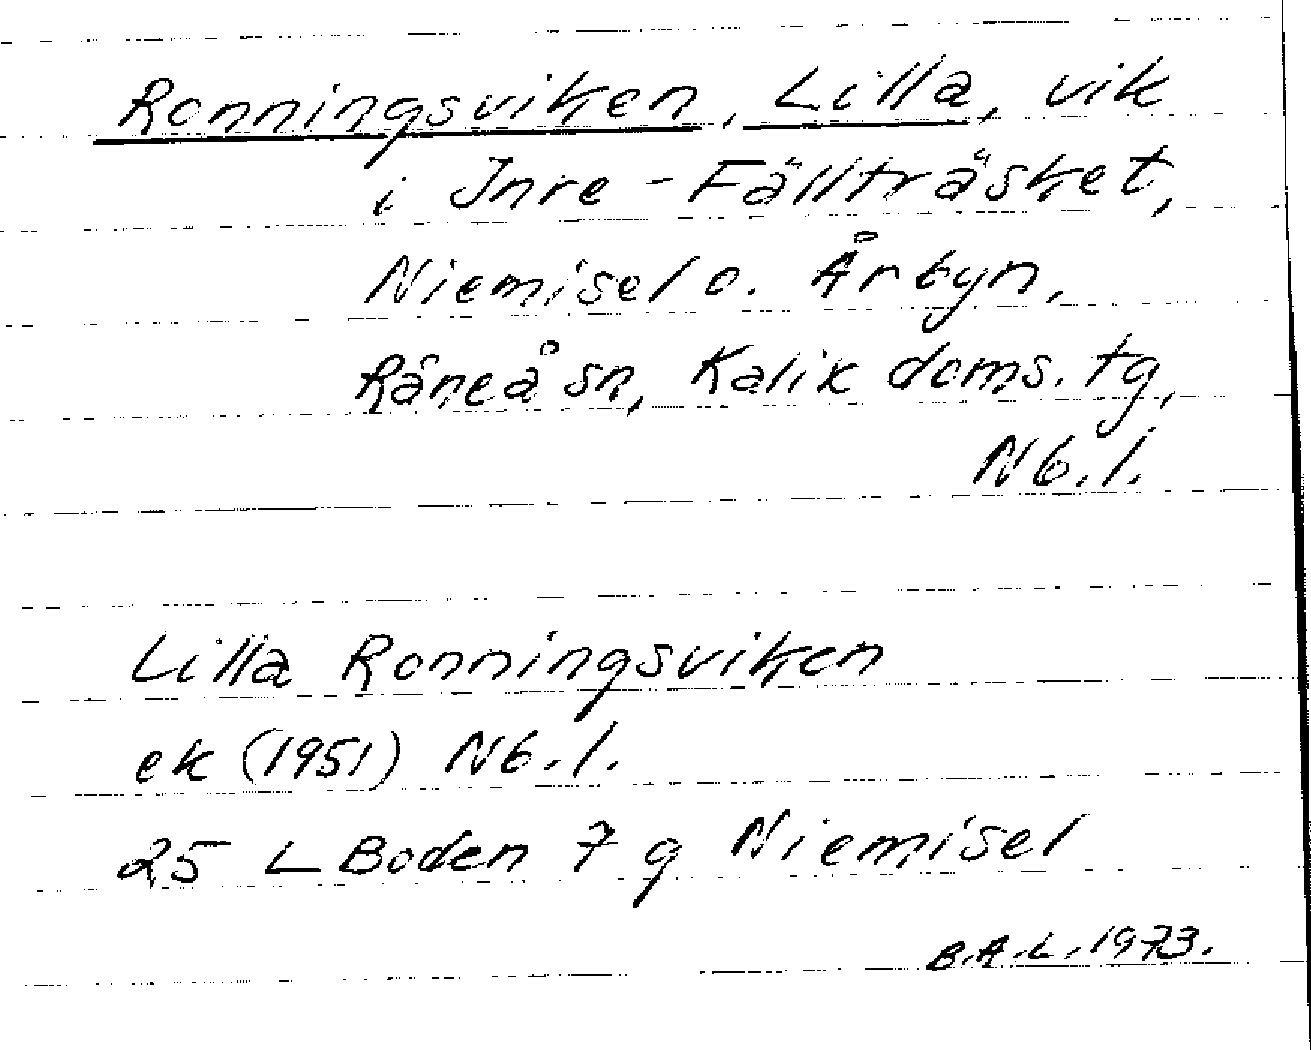 Ronningsviken, Lilla, vik
i Inre-Fällträsket,
Niemisel o. Årbyn,
Råneå sn, Kalix doms. tg,
Nb. l.
Lilla Ronningsviken
ek (1951) Nb. l.
25 L Boden 7 g Niemisel
B.A.L. 1973.